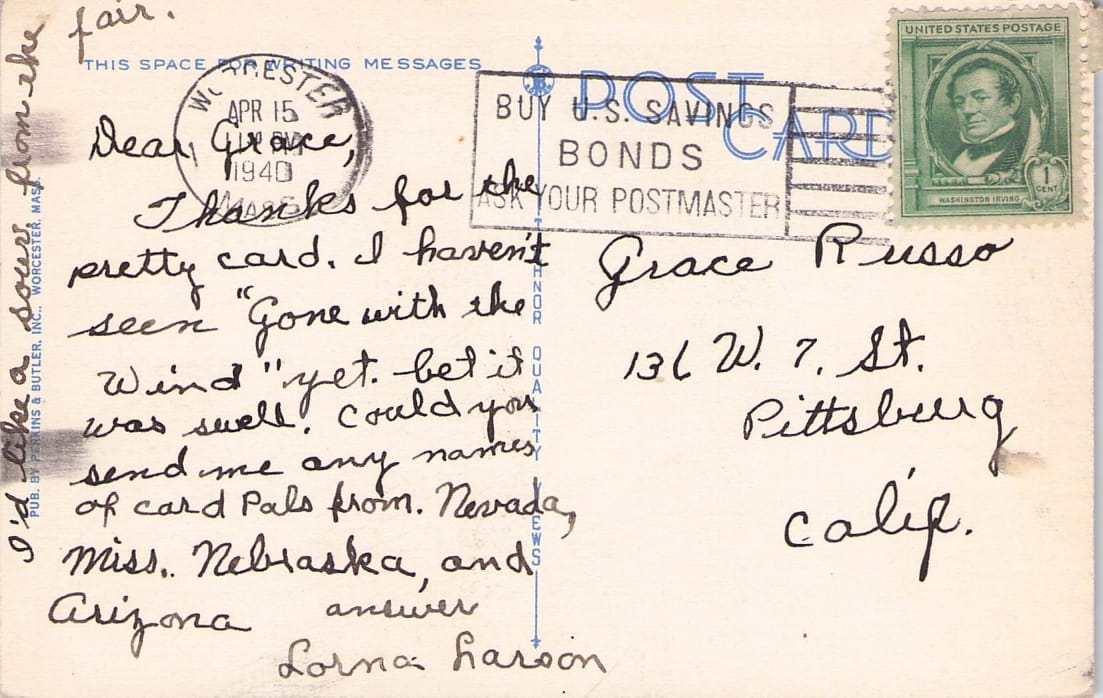 fair.
I'd like a souv. from the
THIS SPACE FOR WRITING MESSAGES
WORCESTER
APR 15
1940
MASS.
BUY U.S. SAVINGS
BONDS
ASK YOUR POSTMASTER
POST
CARD
UNITED STATES POSTAGE
1
CENT
WASHINGTON IRVING
PUB. BY PERKINS & BUTLER, INC., WORCESTER, MASS.
Dear Grace,
Thanks for the
pretty card. I haven't
seen "Gone with the
Wind" yet. bet it
was swell. Could you
send me any names
of card Pals from. Nevada,
Miss., Nebraska, and
Arizona answer
Lorna Larson
QUALITY VIEWS
Grace Russo
136 W. 7. St.
Pittsburg
Calif.